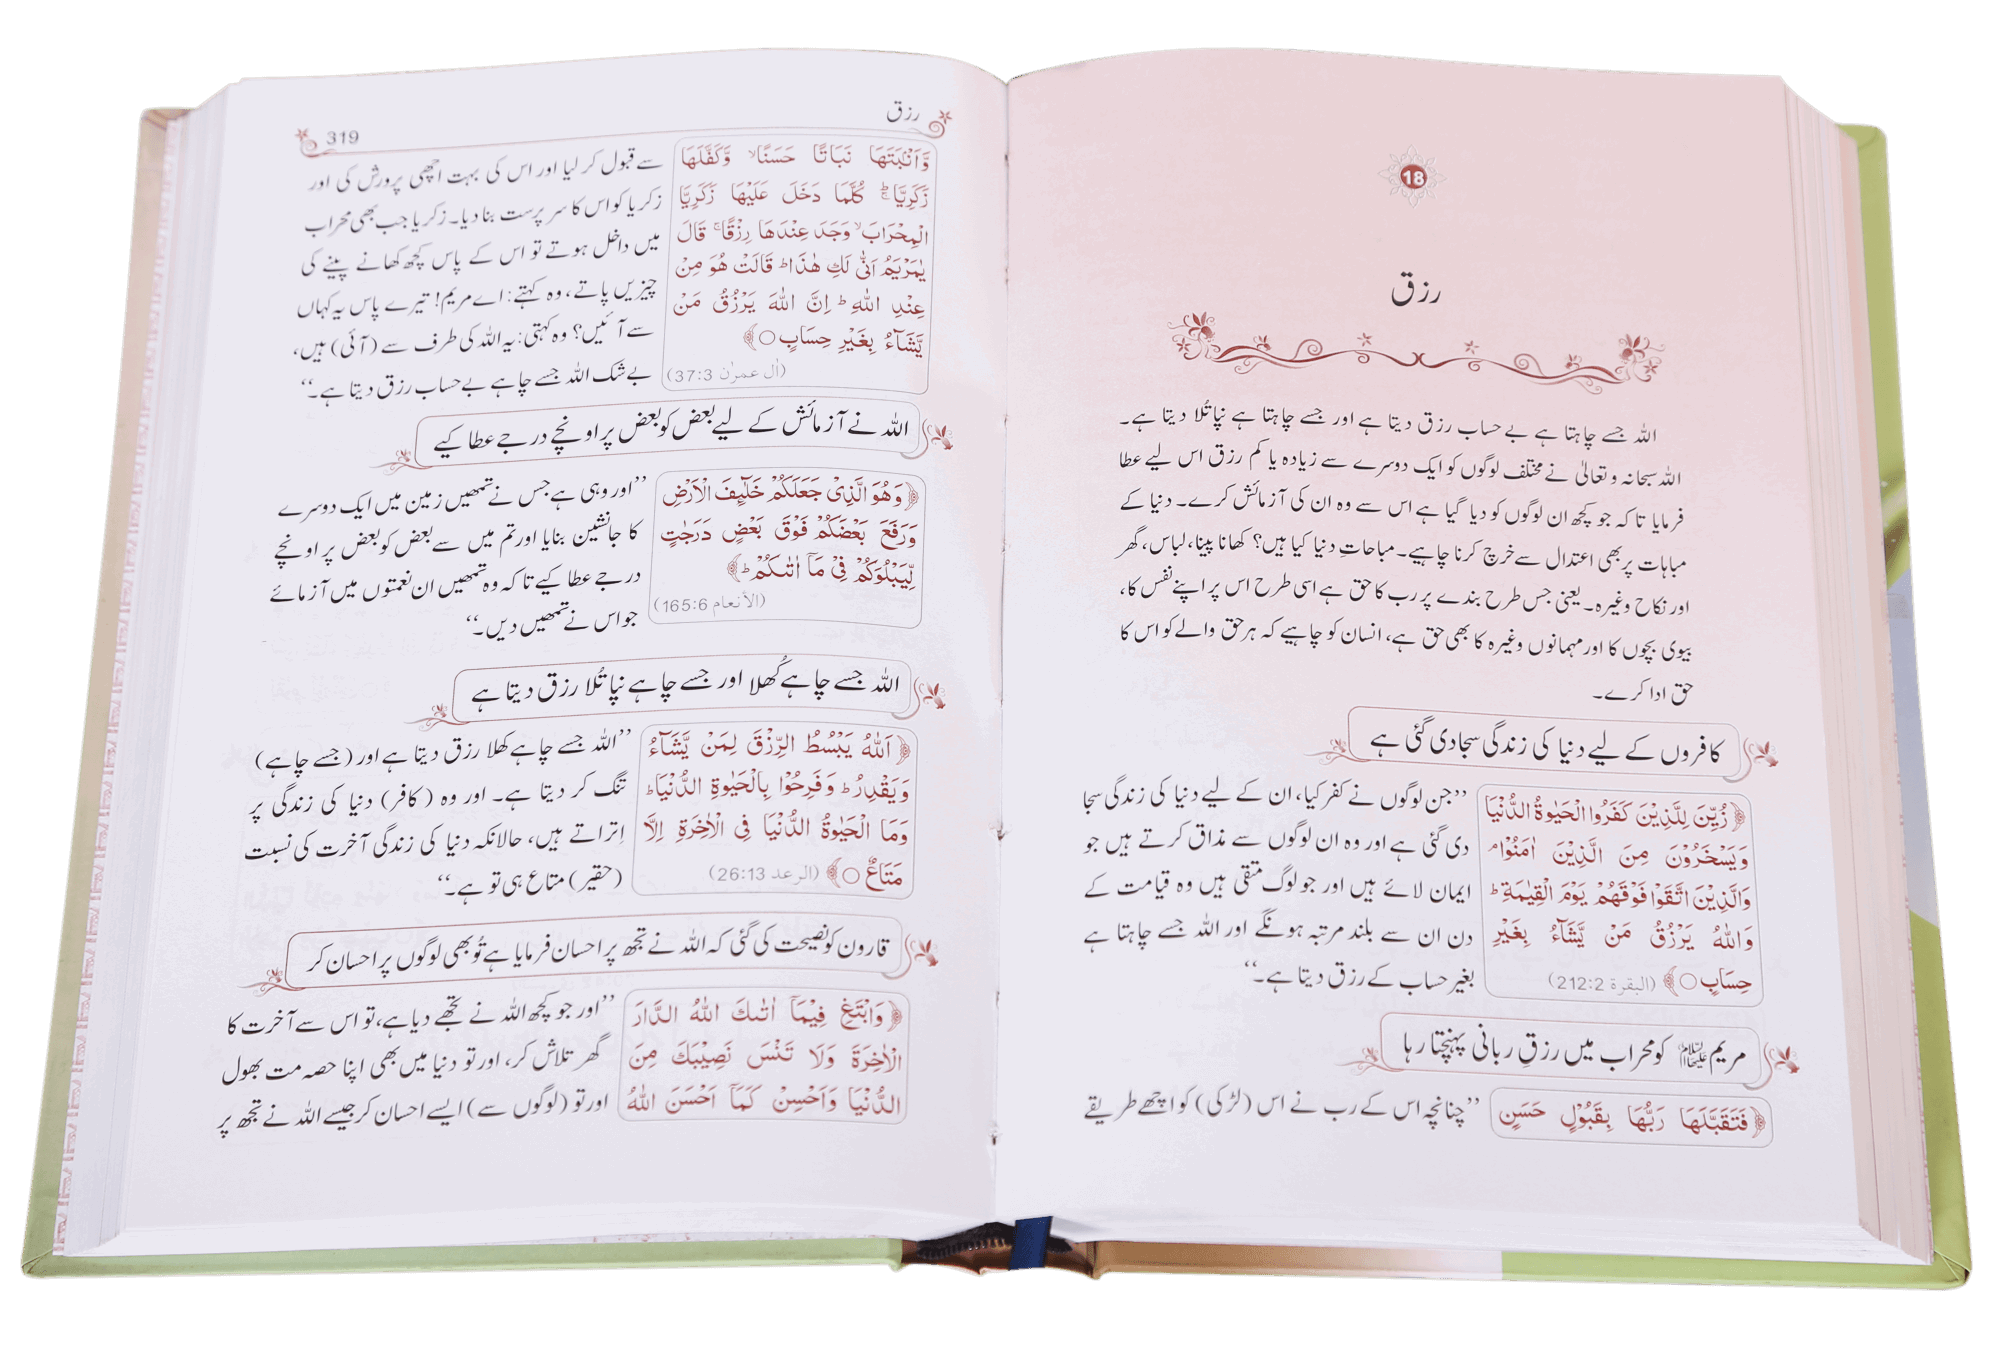 18
رزق
اللہ جسے چاہتا ہے بے حساب رزق دیتا ہے اور جسے چاہتا ہے نپا تُلا دیتا ہے۔
اللہ سبحانہ و تعالیٰ نے مختلف لوگوں کو ایک دوسرے سے زیادہ یا کم رزق اس لیے عطا
فرمایا تا کہ جو کچھ ان لوگوں کو دیا گیا ہے اس سے وہ ان کی آزمائش کرے۔ دنیا کے
مباہات پر بھی اعتدال سے خرچ کرنا چاہیے۔ مباحاتِ دنیا کیا ہیں؟ کھانا پینا، لباس، گھر
اور نکاح وغیرہ۔ یعنی جس طرح بندے پر رب کا حق ہے اسی طرح اس پر اپنے نفس کا،
بیوی بچوں کا اور مہمانوں وغیرہ کا بھی حق ہے، انسان کو چاہیے کہ ہر حق والے کو اس کا
حق ادا کرے۔
کافروں کے لیے دنیا کی زندگی سجا دی گئی ہے
﴿زُيِّنَ لِلَّذِيْنَ كَفَرُوا الْحَيٰوةُ الدُّنْيَا
وَيَسْخَرُوْنَ مِنَ الَّذِيْنَ اٰمَنُوْا ۘ
وَالَّذِيْنَ اتَّقَوْا فَوْقَهُمْ يَوْمَ الْقِيٰمَةِ ؕ
وَاللّٰهُ يَرْزُقُ مَنْ يَّشَآءُ بِغَيْرِ
حِسَابٍ ○﴾ (البقرة 212:2)
’’جن لوگوں نے کفر کیا، ان کے لیے دنیا کی زندگی سجا
دی گئی ہے اور وہ ان لوگوں سے مذاق کرتے ہیں جو
ایمان لائے ہیں اور جو لوگ متقی ہیں وہ قیامت کے
دن ان سے بلند مرتبہ ہونگے اور اللہ جسے چاہتا ہے
بغیر حساب کے رزق دیتا ہے۔‘‘
مریم علیہا السلام کو محراب میں رزقِ ربانی پہنچتا رہا
﴿فَتَقَبَّلَهَا رَبُّهَا بِقَبُوْلٍ حَسَنٍ
’’چنانچہ اس کے رب نے اس (لڑکی) کو اچھے طریقے
رزق
319
وَّاَنْۢبَتَهَا نَبَاتًا حَسَنًا ۙ وَّكَفَّلَهَا
زَكَرِيَّا ؕ كُلَّمَا دَخَلَ عَلَيْهَا زَكَرِيَّا
الْمِحْرَابَ ۙ وَجَدَ عِنْدَهَا رِزْقًا ۚ قَالَ
يٰمَرْيَمُ اَنّٰى لَكِ هٰذَا ؕ قَالَتْ هُوَ مِنْ
عِنْدِ اللّٰهِ ؕ اِنَّ اللّٰهَ يَرْزُقُ مَنْ
يَّشَآءُ بِغَيْرِ حِسَابٍ ○﴾
(اٰل عمرٰن 37:3)
سے قبول کر لیا اور اس کی بہت اچھی پرورش کی اور
زکریا کو اس کا سرپرست بنا دیا۔ زکریا جب بھی محراب
میں داخل ہوتے تو اس کے پاس کچھ کھانے پینے کی
چیزیں پاتے، وہ کہتے: اے مریم! تیرے پاس یہ کہاں
سے آئیں؟ وہ کہتی: یہ اللہ کی طرف سے (آئی) ہیں،
بے شک اللہ جسے چاہے بے حساب رزق دیتا ہے۔‘‘
اللہ نے آزمائش کے لیے بعض کو بعض پر اونچے درجے عطا کیے
﴿وَهُوَ الَّذِيْ جَعَلَكُمْ خَلٰٓئِفَ الْاَرْضِ
وَرَفَعَ بَعْضَكُمْ فَوْقَ بَعْضٍ دَرَجٰتٍ
لِّيَبْلُوَكُمْ فِيْ مَآ اٰتٰىكُمْ ؕ﴾
(الأنعام 165:6)
’’اور وہی ہے جس نے تمھیں زمین میں ایک دوسرے
کا جانشین بنایا اور تم میں سے بعض کو بعض پر اونچے
درجے عطا کیے تا کہ وہ تمھیں ان نعمتوں میں آزمائے
جو اس نے تمھیں دیں۔‘‘
اللہ جسے چاہے کُھلا اور جسے چاہے نپا تُلا رزق دیتا ہے
﴿اَللّٰهُ يَبْسُطُ الرِّزْقَ لِمَنْ يَّشَآءُ
وَيَقْدِرُ ؕ وَفَرِحُوْا بِالْحَيٰوةِ الدُّنْيَا ؕ
وَمَا الْحَيٰوةُ الدُّنْيَا فِى الْاٰخِرَةِ اِلَّا
مَتَاعٌ ○﴾ (الرعد 26:13)
’’اللہ جسے چاہے کھلا رزق دیتا ہے اور (جسے چاہے)
تنگ کر دیتا ہے۔ اور وہ (کافر) دنیا کی زندگی پر
اِتراتے ہیں، حالانکہ دنیا کی زندگی آخرت کی نسبت
(حقیر) متاع ہی تو ہے۔‘‘
قارون کو نصیحت کی گئی کہ اللہ نے تجھ پر احسان فرمایا ہے تُو بھی لوگوں پر احسان کر
﴿وَابْتَغِ فِيْمَآ اٰتٰىكَ اللّٰهُ الدَّارَ
الْاٰخِرَةَ وَلَا تَنْسَ نَصِيْبَكَ مِنَ
الدُّنْيَا وَاَحْسِنْ كَمَآ اَحْسَنَ اللّٰهُ
’’اور جو کچھ اللہ نے تجھے دیا ہے، تو اس سے آخرت کا
گھر تلاش کر، اور تو دنیا میں بھی اپنا حصہ مت بھول
اور تو (لوگوں سے) ایسے احسان کر جیسے اللہ نے تجھ پر